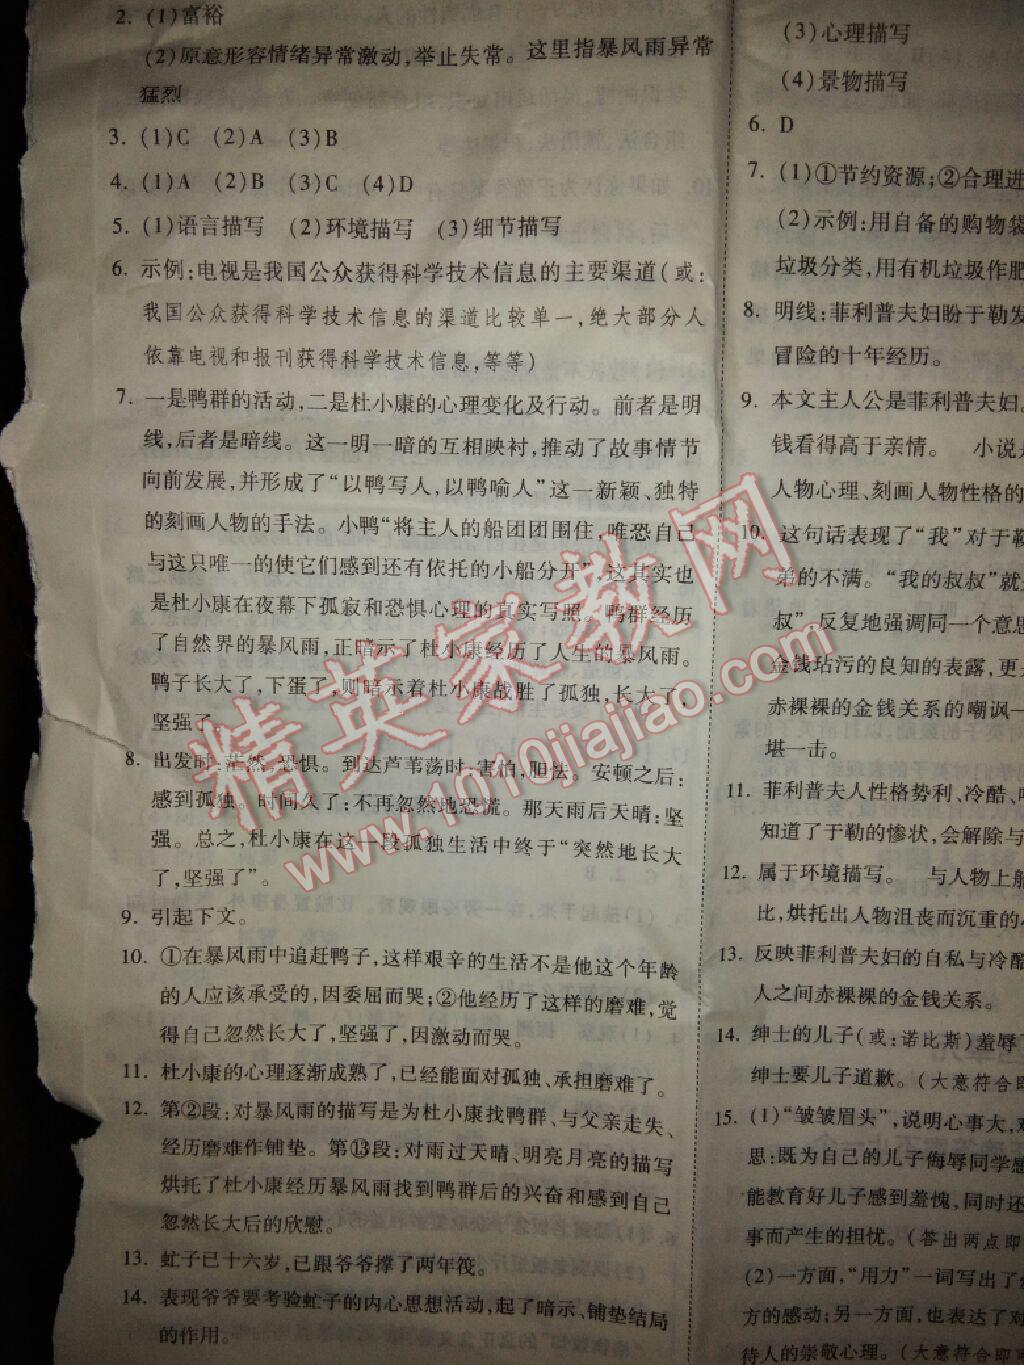 2. (1)富裕
(2)原意形容情绪异常激动,举止失常。这里指暴风雨异常
猛烈
3. (1)C (2)A (3)B
4. (1)A (2)B (3)C (4)D
5. (1)语言描写 (2)环境描写 (3)细节描写
6. 示例:电视是我国公众获得科学技术信息的主要渠道(或:
我国公众获得科学技术信息的渠道比较单一,绝大部分人
依靠电视和报刊获得科学技术信息,等等)
7. 一是鸭群的活动,二是杜小康的心理变化及行动。前者是明
线,后者是暗线。这一明一暗的互相映衬,推动了故事情节
向前发展,并形成了“以鸭写人,以鸭喻人”这一新颖、独特
的刻画人物的手法。小鸭“将主人的船团团围住,唯恐自己
与这只唯一的使它们感到还有依托的小船分开”,这其实也
是杜小康在夜幕下孤寂和恐惧心理的真实写照。鸭群经历
了自然界的暴风雨,正暗示了杜小康经历了人生的暴风雨。
鸭子长大了,下蛋了,则暗示着杜小康战胜了孤独,长大了,
坚强了。
8. 出发时:茫然,恐惧。到达芦苇荡时:害怕,胆怯。安顿之后:
感到孤独。时间久了:不再忽然地恐慌。那天雨后天晴:坚
强。总之,杜小康在这一段孤独生活中终于“突然地长大
了,坚强了”。
9. 引起下文。
10. ①在暴风雨中追赶鸭子,这样艰辛的生活不是他这个年龄
的人应该承受的,因委屈而哭;②他经历了这样的磨难,觉
得自己忽然长大了,坚强了,因激动而哭。
11. 杜小康的心理逐渐成熟了,已经能面对孤独、承担磨难了。
12. 第②段:对暴风雨的描写是为杜小康找鸭群、与父亲走失、
经历磨难作铺垫。第⑬段:对雨过天晴、明亮月亮的描写
烘托了杜小康经历暴风雨找到鸭群后的兴奋和感到自己
忽然长大后的欣慰。
13. 虻子已十六岁,已跟爷爷撑了两年筏。
14. 表现爷爷要考验虻子的内心思想活动,起了暗示、铺垫结局
的作用。
(3)心理描写
(4)景物描写
6. D
7. (1)①节约资源;②合理进
(2)示例:用自备的购物袋
垃圾分类,用有机垃圾作肥
8. 明线:菲利普夫妇盼于勒发
冒险的十年经历。
9. 本文主人公是菲利普夫妇。
钱看得高于亲情。 小说是
人物心理、刻画人物性格的
10. 这句话表现了“我”对于勒
弟的不满。“我的叔叔”就
叔”,反复地强调同一个意思
金钱玷污的良知的表露,更
赤裸裸的金钱关系的嘲讽一
堪一击。
11. 菲利普夫人性格势利、冷酷、
知道了于勒的惨状,会解除与
12. 属于环境描写。 与人物上船
比,烘托出人物沮丧而沉重的
13. 反映菲利普夫妇的自私与冷酷
人之间赤裸裸的金钱关系。
14. 绅士的儿子(或:诺比斯)羞辱了
绅士要儿子道歉。(大意符合即
15. (1)“皱皱眉头”,说明心事大,对
思:既为自己的儿子侮辱同学感
能教育好儿子感到羞愧,同时还
事而产生的担忧。(答出两点即
(2)一方面,“用力”一词写出了
方的感动;另一方面,也表达了对
待人的崇敬心理。(大意符合即
精英家教网
www.1010jiajiao.com